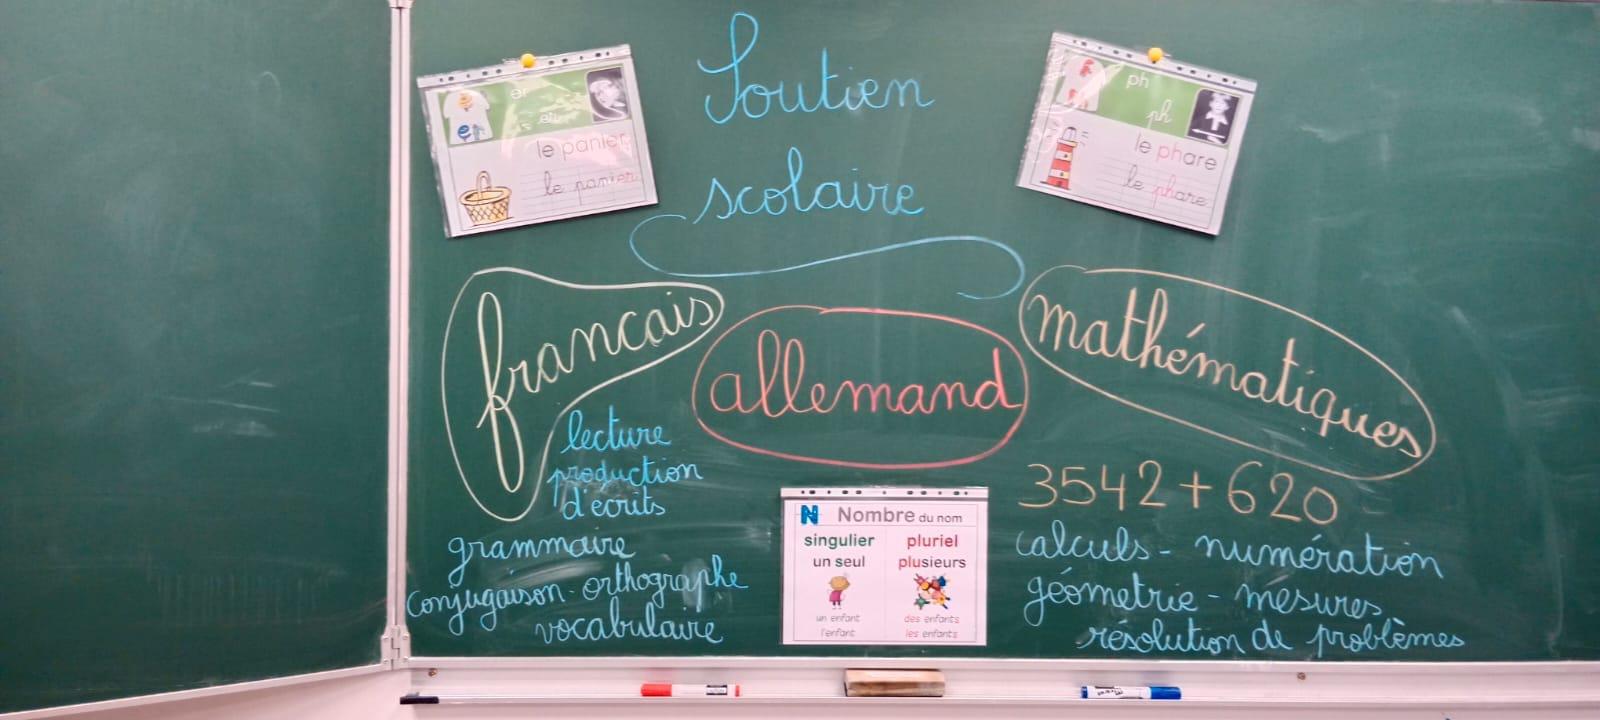 Soutien
scolaire
er
er
le panier
le panier
ph
ph
le phare
le phare
francais
lecture
production
d'écrits
grammaire
conjugaison - orthographe
vocabulaire
allemand
N Nombre du nom
singulier
un seul
un enfant
l'enfant
pluriel
plusieurs
des enfants
les enfants
mathématiques
3542 + 620
calculs - numération
géométrie - mesures
résolution de problèmes